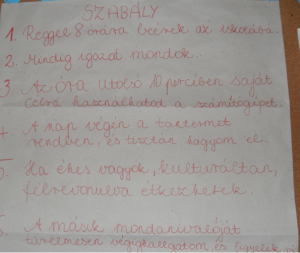 SZABÁLY
1. Reggel 8 órára beérek az iskolába.
2. Mindig igazat mondok.
3. Az óra utolsó 10 percében saját
célra használhatod a számítógépet.
4. A nap végén a tantermet
rendben, és tisztán hagyom el.
5. Ha éhes vagyok, kulturáltan,
félrevonulva étkezhetek.
6. A másik mondanivalóját
türelmesen végighallgatom és